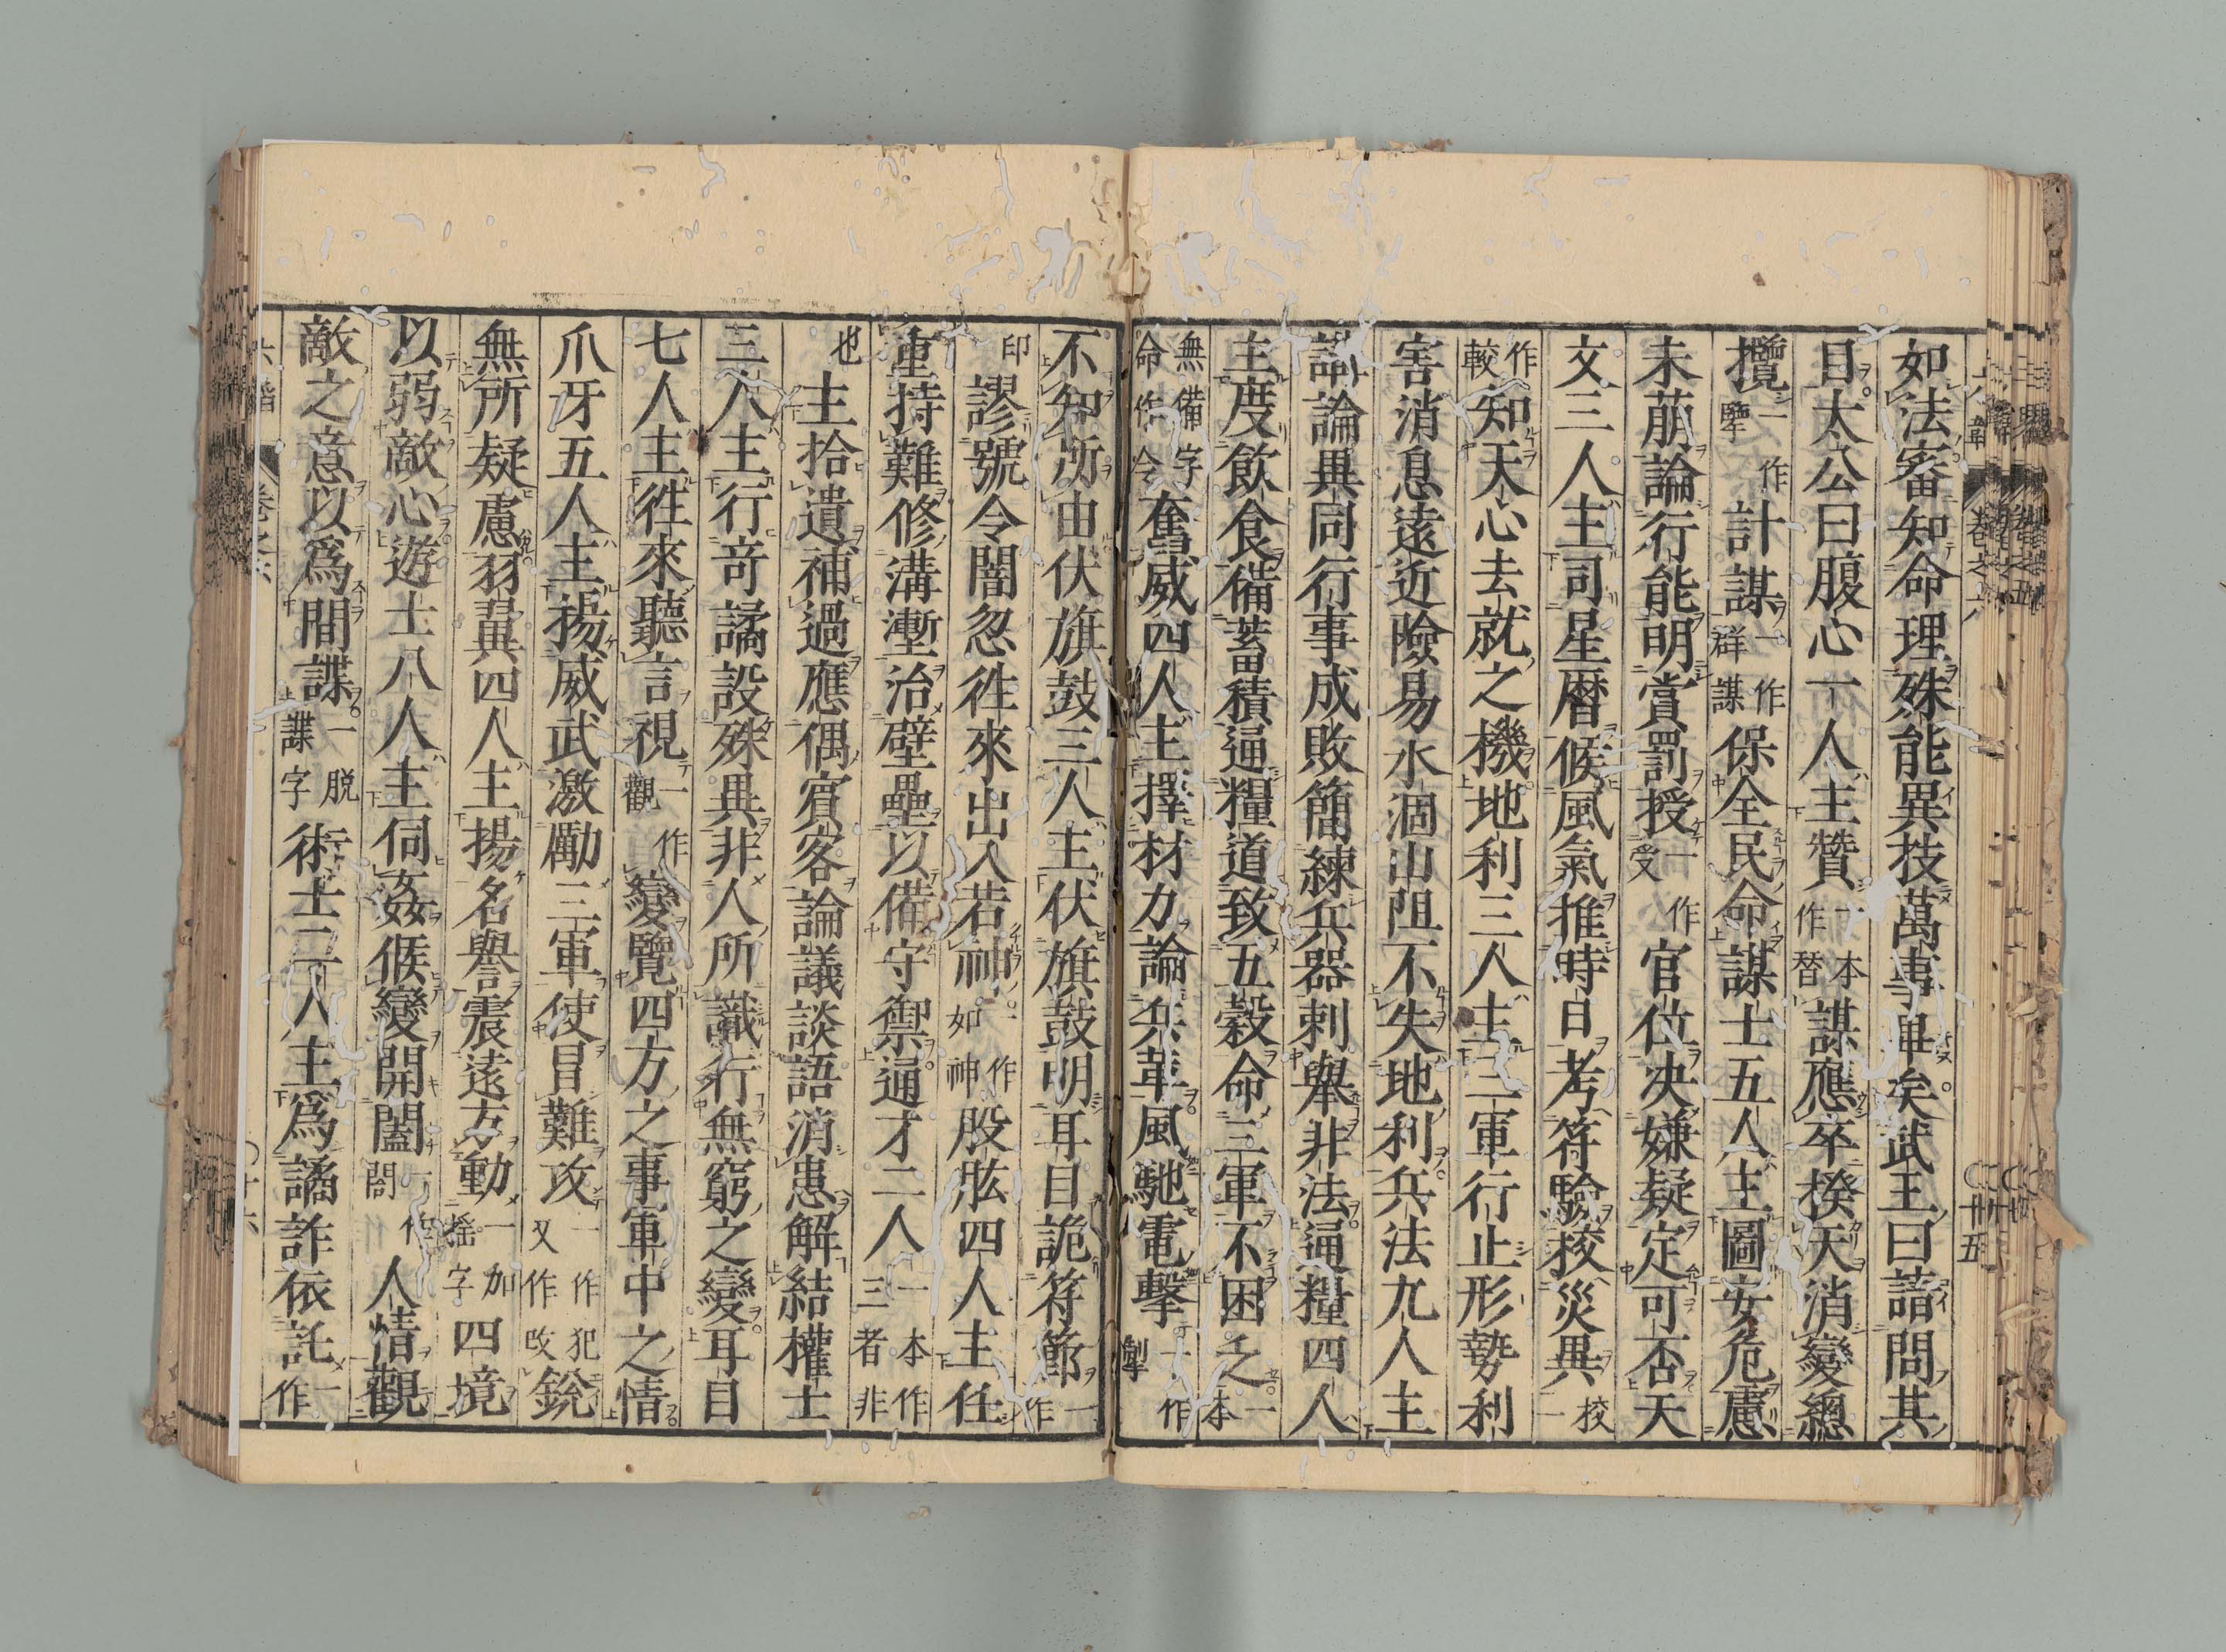 如法審知命理殊能異技萬事畢矣武王曰請問其
目太公曰腹心一人主贊一本作替謀應卒揆天消變總
攬一作擥計謀一作群謀保全民命謀士五人主圖安危慮
未萌論行能明賞罰授一作受官位决嫌疑定可否天
文三人主司星曆候風氣推時日考符驗挍災異挍一
作較知天心去就之機地利三人主三軍行止形勢利
害消息遠近險易水涸山阻不失地利兵法九人主
講論異同行事成敗簡練兵器刺舉非法通糧四人
主度飲食備蓄積通糧道致五穀命三軍不困乏一本
無備字命作令奮威四人主擇材力論兵革風馳電擊一作
不知所由伏旗鼓三人主伏旗鼓明耳目詭符節一作
印謬號令闇忽徃來出入若神一作如神股肱四人主任
重持難修溝塹治壁壘以備守禦通才二人一本作三者非
也主拾遺補過應偶賓客論議談語消患解結權士
三人主行竒譎設殊異非人所識行無窮之變耳目
七人主徃來聽言視一作觀變覽四方之事軍中之情
爪牙五人主揚威武激勵三軍使冒難攻一作犯又作攺銳
無所疑慮羽翼四人主揚名譽震遠方動一加摇字四境
以弱敵心遊士八人主伺姦候變開闔一作閤人情觀
敵之意以爲間諜一脱諜字術士二人主爲譎詐依託一作
卷之六
廿五